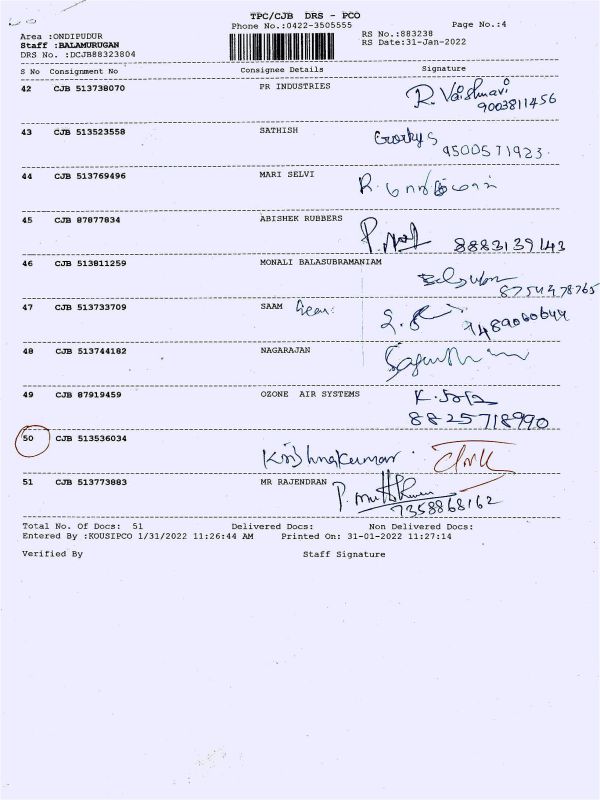 TPC/CJB DRS - PCO
Phone No.:0422-3505555
Page No.:4
Area :ONDIPUDUR
RS No.:883238
Staff :BALAMURUGAN
RS Date:31-Jan-2022
DRS No. :DCJB88323804
S No Consignment No Consignee Details Signature
42 CJB 513738070 PR INDUSTRIES R. Vaishnavi
9003811456
43 CJB 513523558 SATHISH
9500571923.
44 CJB 513769496 MARI SELVI R.
45 CJB 87877834 ABISHEK RUBBERS
8883139143
46 CJB 513811259 MONALI BALASUBRAMANIAM
8754978765
47 CJB 513733709 SAAM
9489060644
48 CJB 513744182 NAGARAJAN
49 CJB 87919459 OZONE AIR SYSTEMS
8825718990
50 CJB 513536034
Krishnakumar.
51 CJB 513773883 MR RAJENDRAN
7358868162
Total No. Of Docs: 51 Delivered Docs: Non Delivered Docs:
Entered By :KOUSIPCO 1/31/2022 11:26:44 AM Printed On: 31-01-2022 11:27:14
Verified By Staff Signature